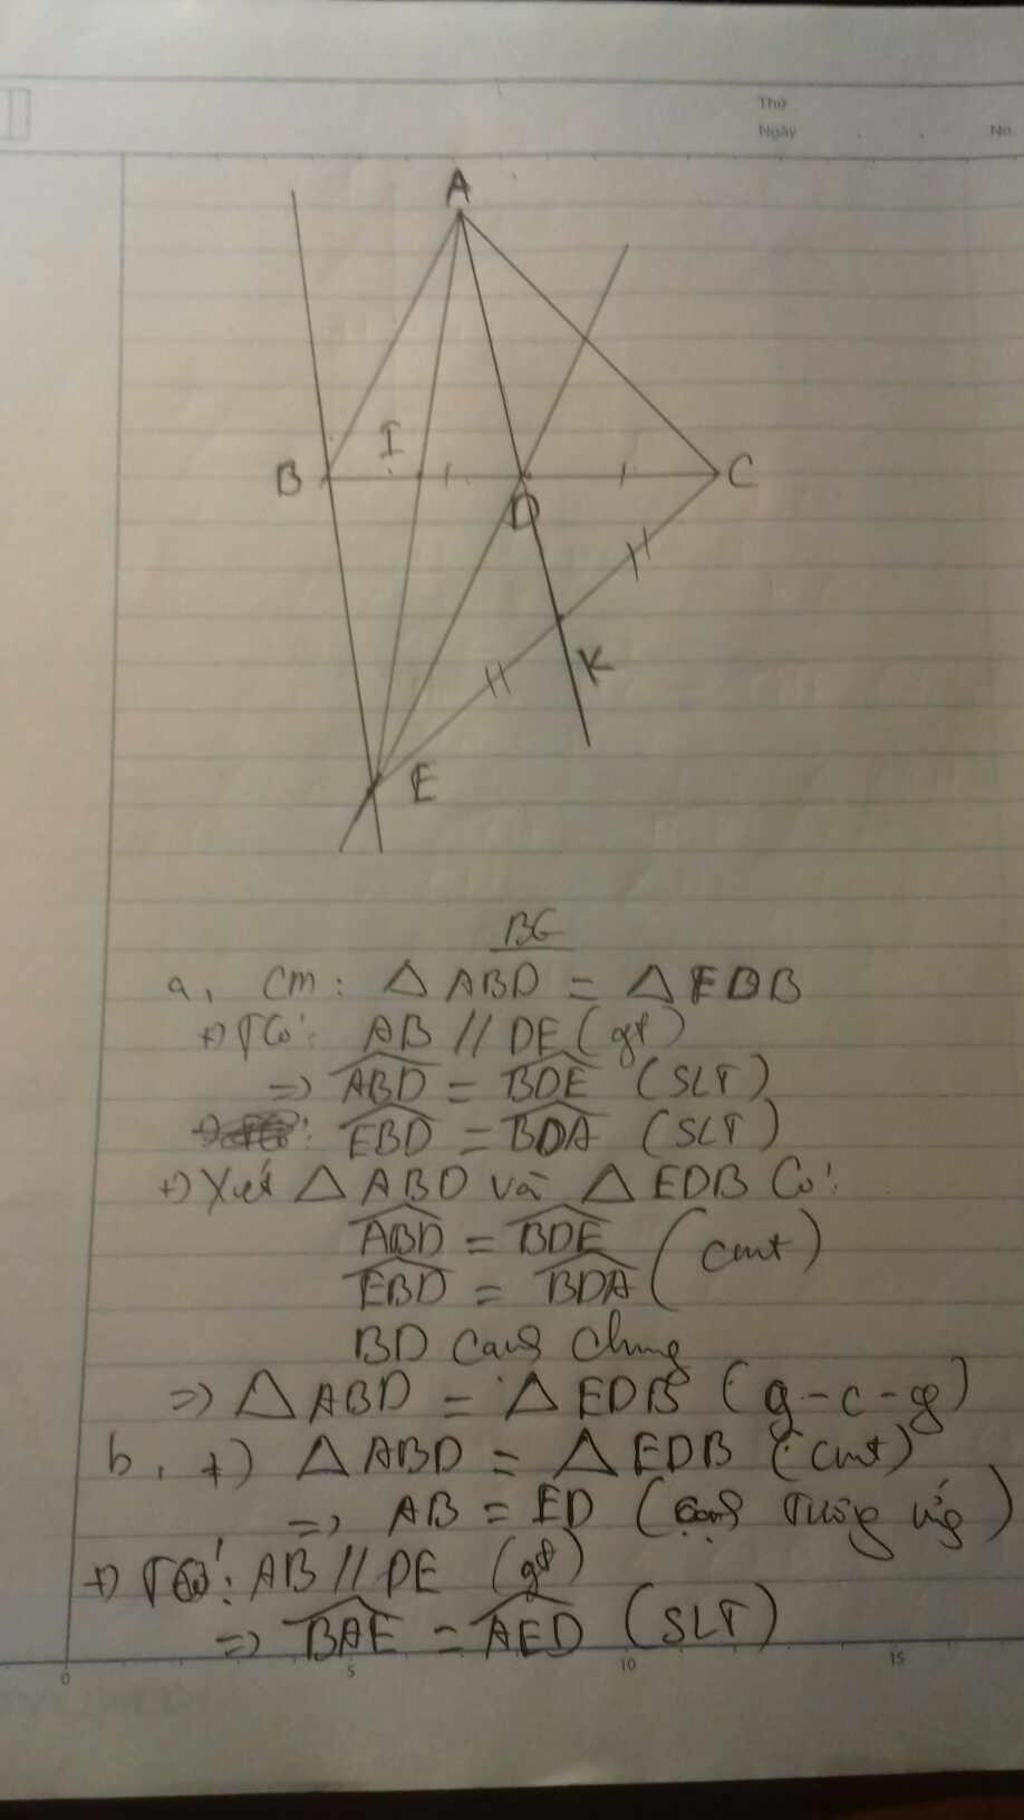 Thứ
Ngày
No.
A
B
I
C
D
K
E
BG
a, Cm: △ ABD = △ EDB
+) TCó: AB // DE (gt)
=> ABD = BDE (SLT)
EBD = BDA (SLT)
+) Xét △ ABD và △ EDB Có:
ABD = BDE
EBD = BDA (cmt)
BD cạnh chung
=> △ ABD = △ EDB (g-c-g)
b, +) △ ABD = △ EDB (cmt)
=> AB = ED (cạnh tương ứng)
+) TCó: AB // DE (gt)
=> BAE = AED (SLT)
0 5 10 15